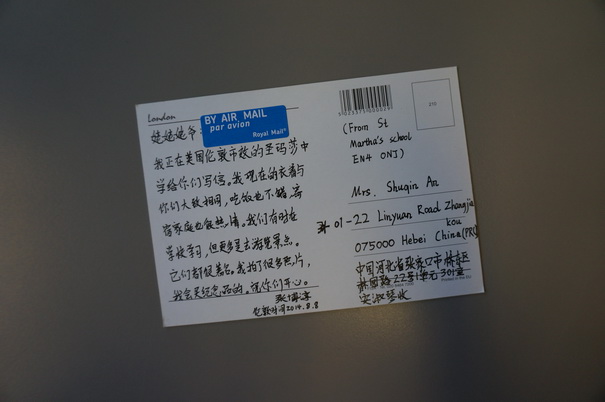 London
姥姥姥爷:
BY AIR MAIL
par avion
Royal Mail®
我正在英国伦敦市教的圣玛莎中
学给你们写信。我现在的衣着与
你们大致相同,吃饭也不错,寄
宿家庭也很热情。我们有时在
学校学习,但更多是去游览景点。
它们都很美。我拍了很多照片,
我会买纪念品的。祝你们开心。
伦敦时间2014.8.8
(From St
Martha's school
EN4 0NJ)
Mrs. Shuqin An
01-22 Linyuan Road Zhangjia
kou
075000 Hebei China(PRC)
中国河北省张家口市桥东区
林园路22号1单元301室
安淑琴收